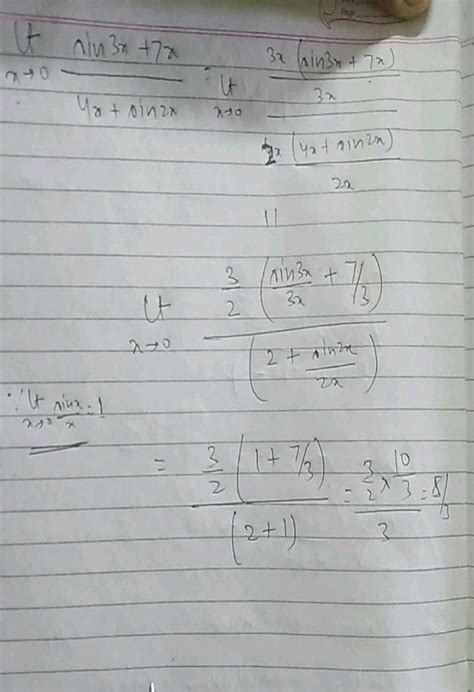 lt x→0 (sin3x + 7x)/(4x + sin2x) = lt x→0 (3x (sin3x + 7x)/3x)/(2x (4x + sin2x)/2x)
||
lt x→0 (3/2 (sin3x/3x + 7/3))/(2 + sin2x/2x)
∵ lt x→0 sinx/x = 1
= (3/2 (1 + 7/3))/(2+1) = (3/2 × 10/3)/3 = 8/3